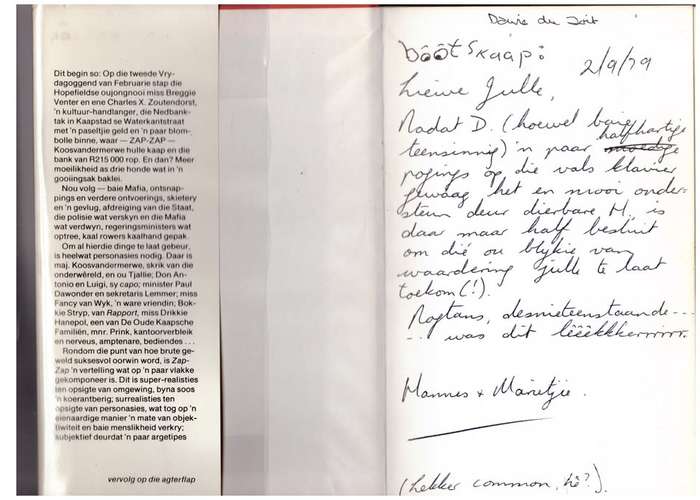 Dit begin so: Op die tweede Vry-
dagoggend van Februarie stap die
Hopefieldse oujongnooi miss Breggie
Venter en ene Charles X. Zoutendorst,
'n kultuur-handlanger, die Nedbank-
tak in Kaapstad se Waterkantstraat
met 'n paseltjie geld en 'n paar blom-
bolle binne, waar — ZAP-ZAP —
Koosvandermerwe hulle kaap en die
bank van R215 000 rop. En dan? Meer
moeilikheid as drie honde wat in 'n
gooiingsak baklei.
Nou volg — baie Mafia, ontsnap-
pings en verdere ontvoerings, skietery
en 'n gevlug, afdreiging van die Staat,
die polisie wat verskyn en die Mafia
wat verdwyn, regeringsministers wat
optree, kaal rowers kaalhand gepak.
Om al hierdie dinge te laat gebeur,
is heelwat personasies nodig. Daar is
maj. Koosvandermerwe, skrik van die
onderwêreld, en ou Tjallie; Don An-
tonio en Luigi, sy capo; minister Paul
Dawonder en sekretaris Lemmer; miss
Fancy van Wyk, 'n ware vriendin; Bok-
kie Stryp, van Rapport, miss Drikkie
Hanepol, een van De Oude Kaapsche
Familiën, mnr. Prink, kantoorverbleik
en nerveus, amptenare, bediendes . . .
Rondom die punt van hoe brute ge-
weld suksesvol oorwin word, is Zap-
Zap 'n vertelling wat op 'n paar vlakke
gekomponeer is. Dit is super-realisties
ten opsigte van omgewing, byna soos
'n koerantberig; surrealisties ten
opsigte van personasies, wat tog op 'n
eienaardige manier 'n mate van objek-
tiwiteit en baie menslikheid verkry;
subjektief deurdat 'n paar argetipes
vervolg op die agterflap
Dawie du Toit
bôôtskaap:
2/9/79
Liewe Julle,
Nadat D. (hoewel baie
teensinnig) 'n paar halfhartige
pogings op die vals klavier
gewaag het en mooi onder-
steun deur dierbare M., is
daar maar half besluit
om dié ou blykie van
waardering julle te laat
toekom (!).
Nogtans, desnieteenstaande ---
... was dit lêêêkkkerrrrrr.
Hannes + Marietjie.
(lekker common, hê?).